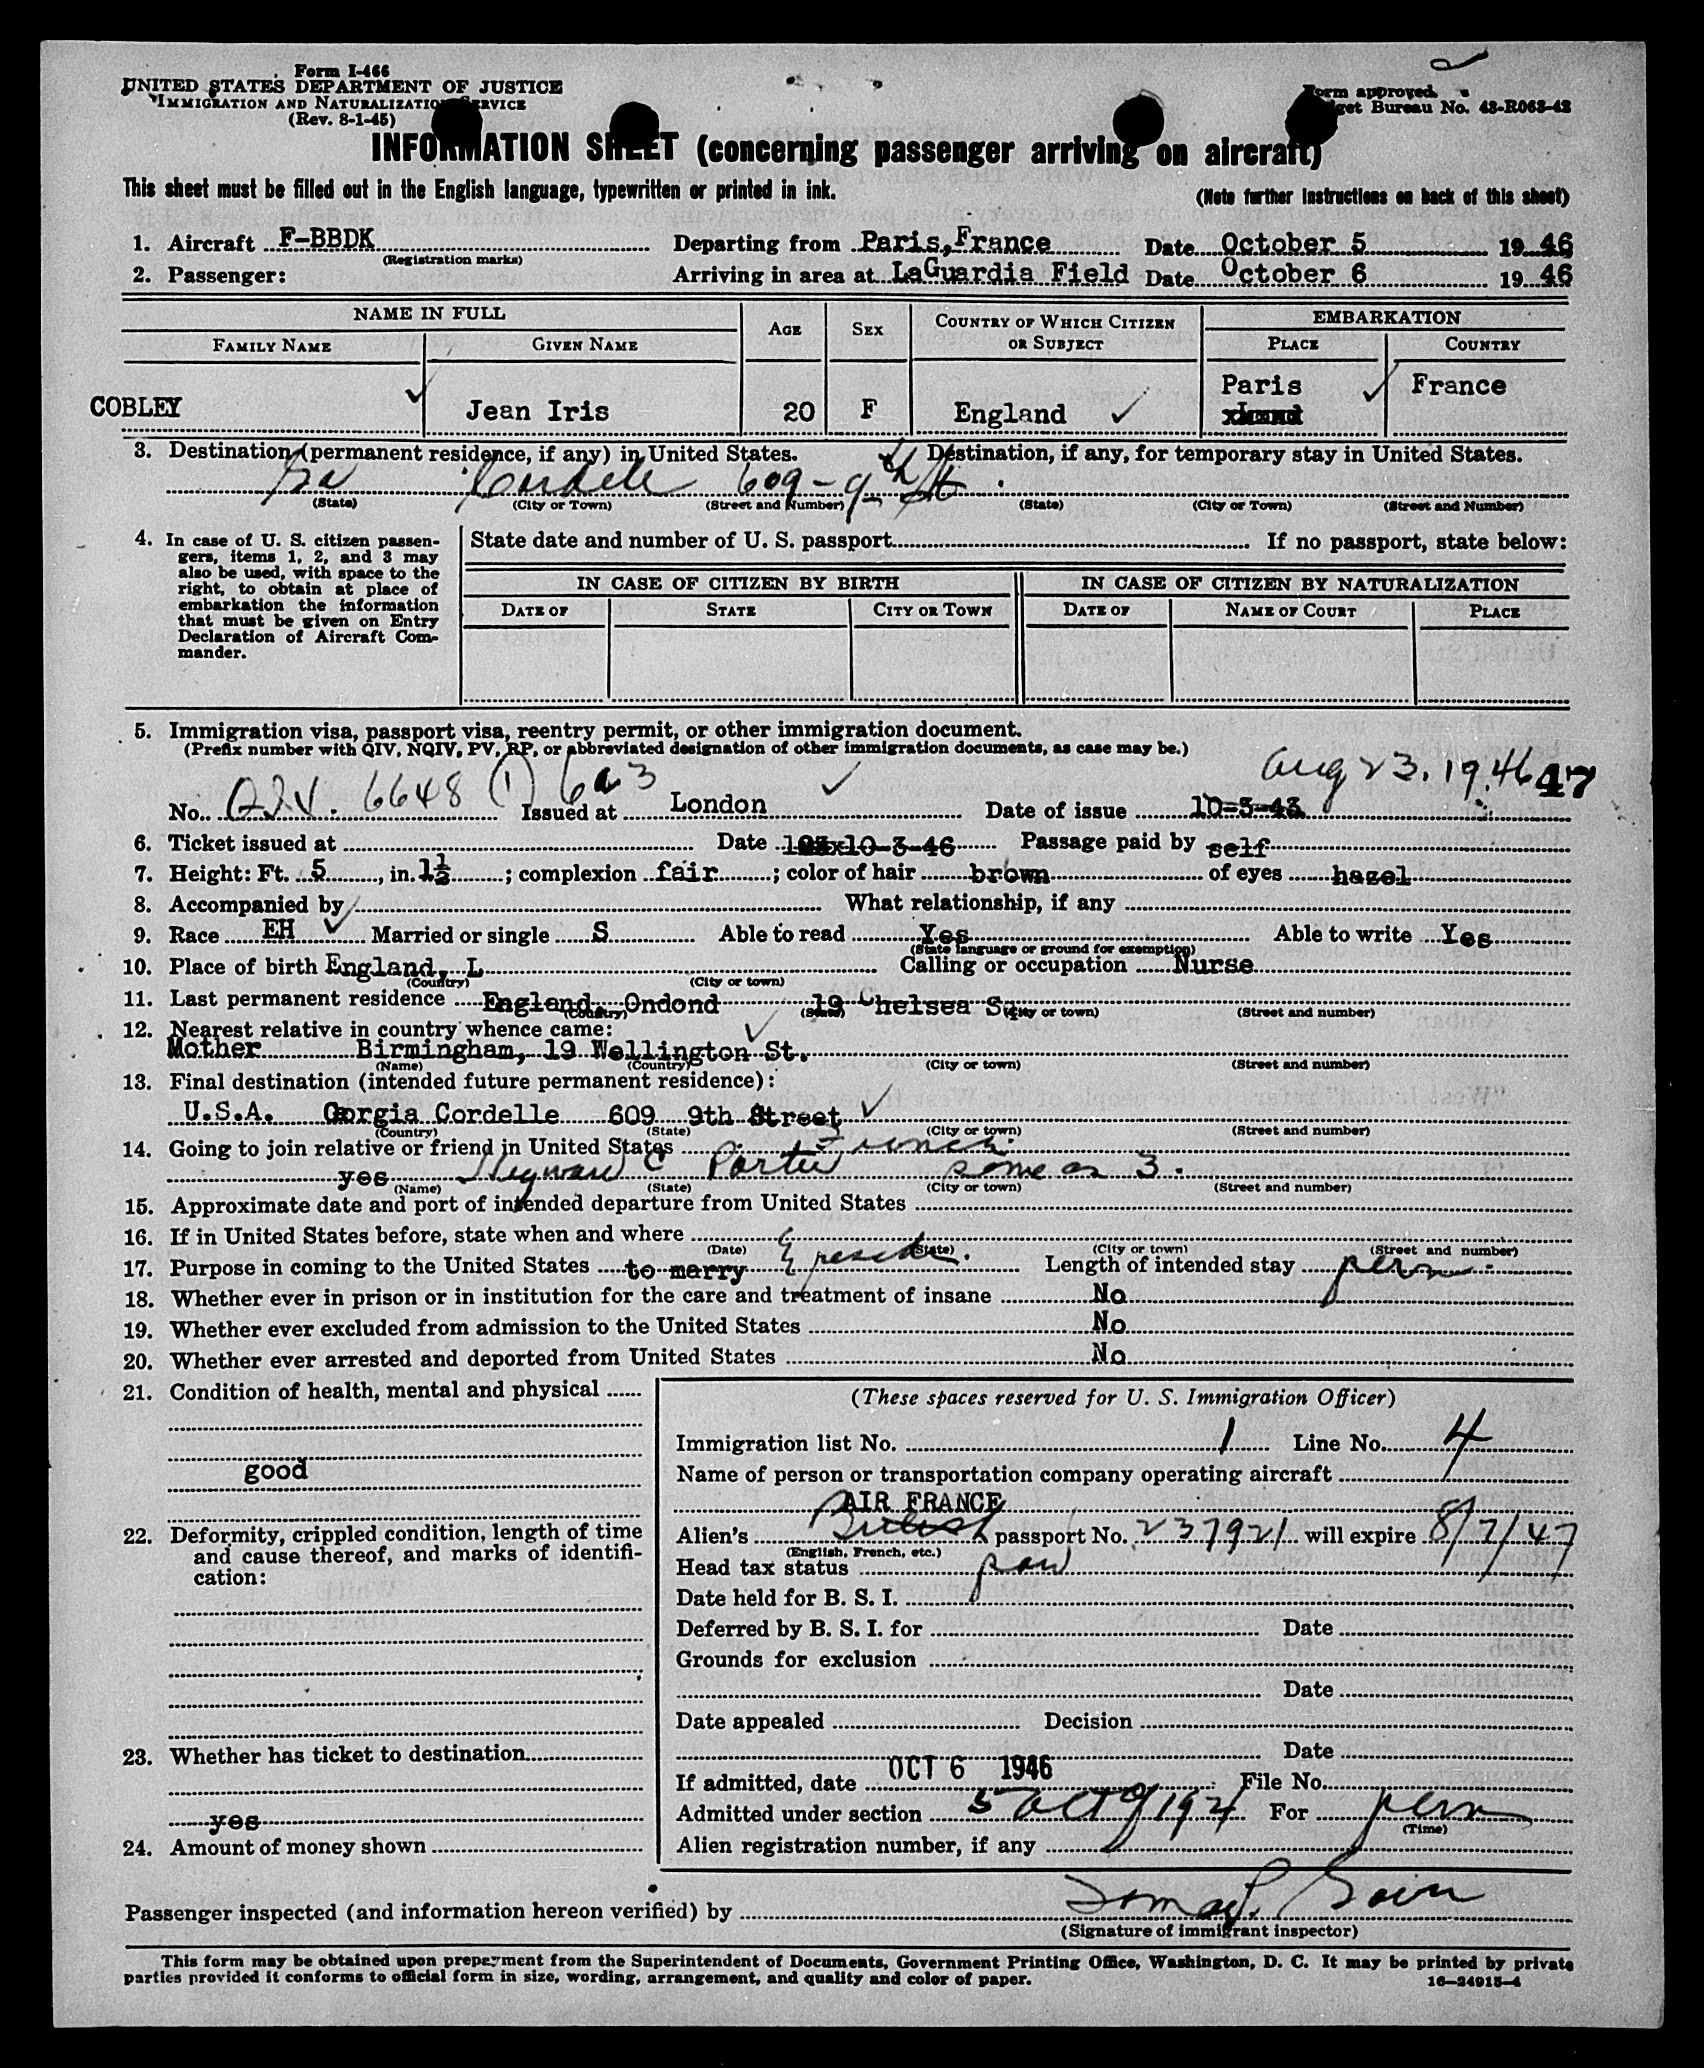 Form I-466
UNITED STATES DEPARTMENT OF JUSTICE
IMMIGRATION AND NATURALIZATION SERVICE
(Rev. 8-1-45)
Form approved.
Budget Bureau No. 43-R063-42
INFORMATION SHEET (concerning passenger arriving on aircraft)
This sheet must be filled out in the English language, typewritten or printed in ink.
(Note further instructions on back of this sheet)
1. Aircraft F-BBDK Departing from Paris, France Date October 5 1946
(Registration marks)
2. Passenger: Arriving in area at LaGuardia Field Date October 6 1946
NAME IN FULL AGE SEX COUNTRY OF WHICH CITIZEN OR SUBJECT EMBARKATION
FAMILY NAME GIVEN NAME PLACE COUNTRY
COBLEY Jean Iris 20 F England Paris France
3. Destination (permanent residence, if any) in United States. Destination, if any, for temporary stay in United States.
Ga Cordele 609 - 9th St.
(State) (City or Town) (Street and Number) (State) (City or Town) (Street and Number)
4. In case of U. S. citizen passengers, items 1, 2, and 3 may also be used, with space to the right, to obtain at place of embarkation the information that must be given on Entry Declaration of Aircraft Commander.
State date and number of U. S. passport If no passport, state below:
IN CASE OF CITIZEN BY BIRTH IN CASE OF CITIZEN BY NATURALIZATION
DATE OF STATE CITY OR TOWN DATE OF NAME OF COURT PLACE
5. Immigration visa, passport visa, reentry permit, or other immigration document.
(Prefix number with QIV, NQIV, PV, RP, or abbreviated designation of other immigration documents, as case may be.)
Aug 23, 1946 47
No. QIV. 6648 (1) 6a3 Issued at London Date of issue 10-3-43
6. Ticket issued at Date 10-3-46 Passage paid by self
7. Height: Ft. 5, in. 1½; complexion fair; color of hair brown of eyes hazel
8. Accompanied by What relationship, if any
9. Race EH Married or single S Able to read Yes Able to write Yes
(State language or ground for exemption)
10. Place of birth England, L Calling or occupation Nurse
(Country) (City or town)
11. Last permanent residence England, Ondond 19 Chelsea S
(Country) (State) (City or town) (Street and number)
12. Nearest relative in country whence came:
Mother Birmingham, 19 Wellington St.
(Name) (Country) (City or town) (Street and number)
13. Final destination (intended future permanent residence):
U.S.A. Gorgia Cordelle 609 9th Street
(Country) (State) (City or town) (Street and number)
14. Going to join relative or friend in United States
yes Heyward C Porter same as 3.
(Name) (State) (City or town) (Street and number)
15. Approximate date and port of intended departure from United States
16. If in United States before, state when and where
(Date) (State) (City or town) (Street and number)
17. Purpose in coming to the United States to marry & reside. Length of intended stay perm.
18. Whether ever in prison or in institution for the care and treatment of insane No
19. Whether ever excluded from admission to the United States No
20. Whether ever arrested and deported from United States No
21. Condition of health, mental and physical
good
22. Deformity, crippled condition, length of time and cause thereof, and marks of identification:
23. Whether has ticket to destination
yes
24. Amount of money shown
(These spaces reserved for U. S. Immigration Officer)
Immigration list No. 1 Line No. 4
Name of person or transportation company operating aircraft
AIR FRANCE
Alien's British passport No. 237921 will expire 8/7/47
(English, French, etc.)
Head tax status
Date held for B. S. I.
Deferred by B. S. I. for Date
Grounds for exclusion
Date
Date appealed Decision
Date
If admitted, date OCT 6 1946 File No.
Admitted under section 5 act of 1924 For perm
(Time)
Alien registration number, if any
Passenger inspected (and information hereon verified) by
(Signature of immigrant inspector)
This form may be obtained upon prepayment from the Superintendent of Documents, Government Printing Office, Washington, D. C. It may be printed by private
parties provided it conforms to official form in size, wording, arrangement, and quality and color of paper.
16—24915-4